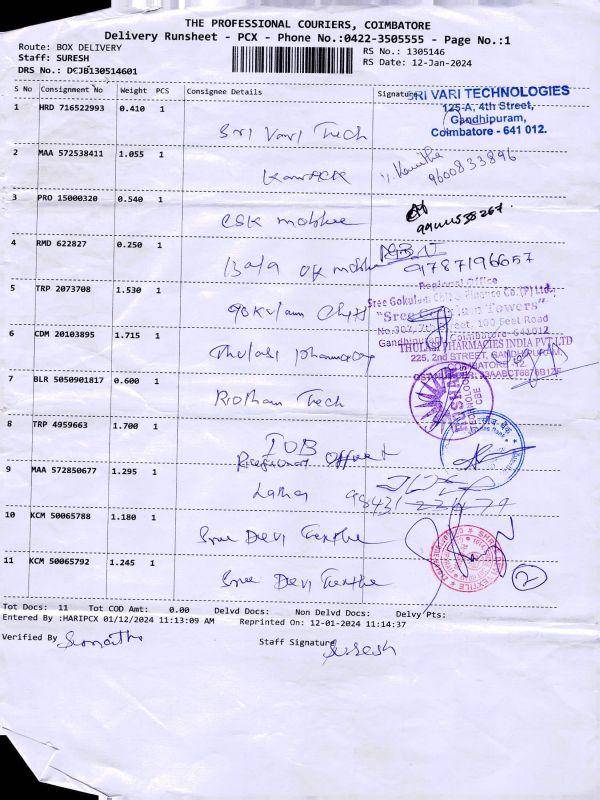 THE PROFESSIONAL COURIERS, COIMBATORE
Delivery Runsheet - PCX - Phone No.:0422-3505555 - Page No.:1
Route: BOX DELIVERY
RS No.: 1305146
Staff: SURESH
RS Date: 12-Jan-2024
DRS No.: DCJB130514601
S No Consignment No Weight PCS Consignee Details Signature
SRI VARI TECHNOLOGIES
125-A, 4th Street,
Gandhipuram,
Coimbatore - 641 012.
1 HRD 716522993 0.410 1
Sri Vari Tech
2 MAA 572538411 1.055 1
9600833896
3 PRO 15000320 0.540 1
CSK mobile
4 RMD 622827 0.250 1
Bala OK mobile 9787196657
Regional Office
5 TRP 2073708 1.530 1
Sree Gokulam Chit & Finance Co.(P) Ltd.,
Gokulam Chits
"Sree Gokulam Towers"
No.307, 7th Street, 100 Feet Road
Gandhipuram, Coimbatore-641012
6 CDM 20103895 1.715 1
THULASI PHARMACIES INDIA PVT LTD
225, 2nd STREET, GANDHIPURAM,
COIMBATORE-12.
Thulasi pharmacy
7 BLR 5050901817 0.600 1
TECHNOLOGIES
CBE
Tech
8 TRP 4959663 1.700 1
IOB
Regional Office
9 MAA 572850677 1.295 1
Latha
10 KCM 50065788 1.180 1
Sree Devi Textile
11 KCM 50065792 1.245 1
Sree Devi Textile
2
Tot Docs: 11 Tot COD Amt: 0.00 Delvd Docs: Non Delvd Docs: Delvy Pts:
Entered By :HARIPCX 01/12/2024 11:13:09 AM Reprinted On: 12-01-2024 11:14:37
Verified By
Staff Signature Suresh